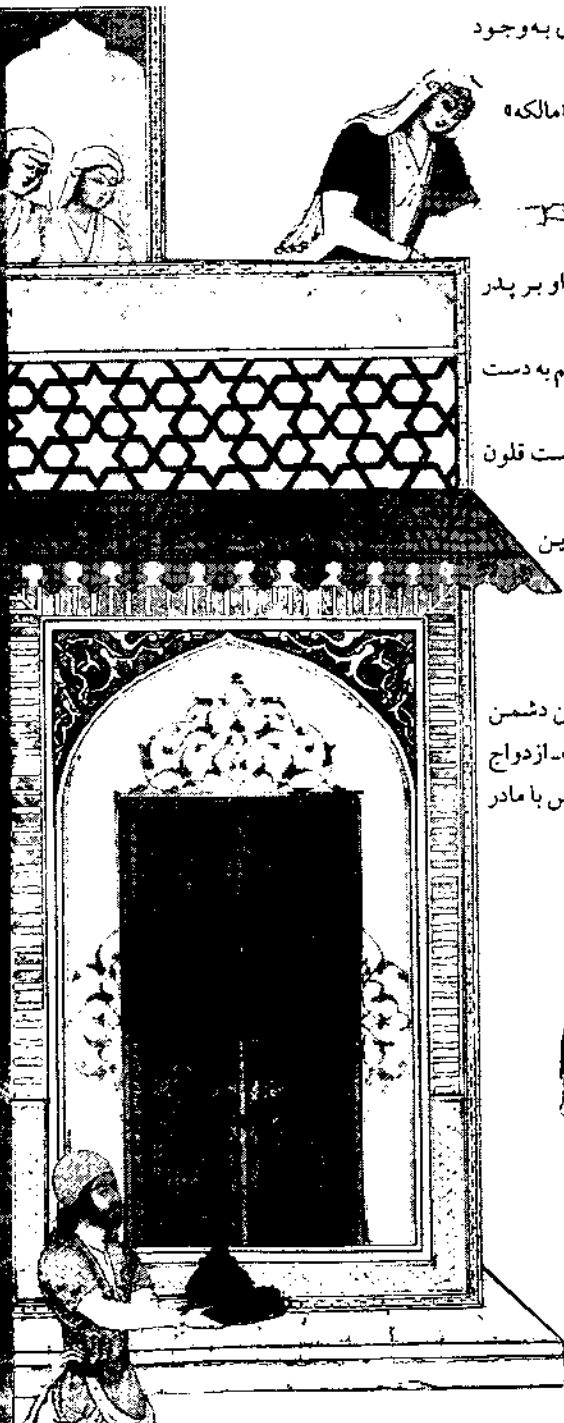 به‌وجود
مالکه»
او بر پدر
م به دست
ست قلون
ین
ن دشمن
ـ ازدواج
س با مادر